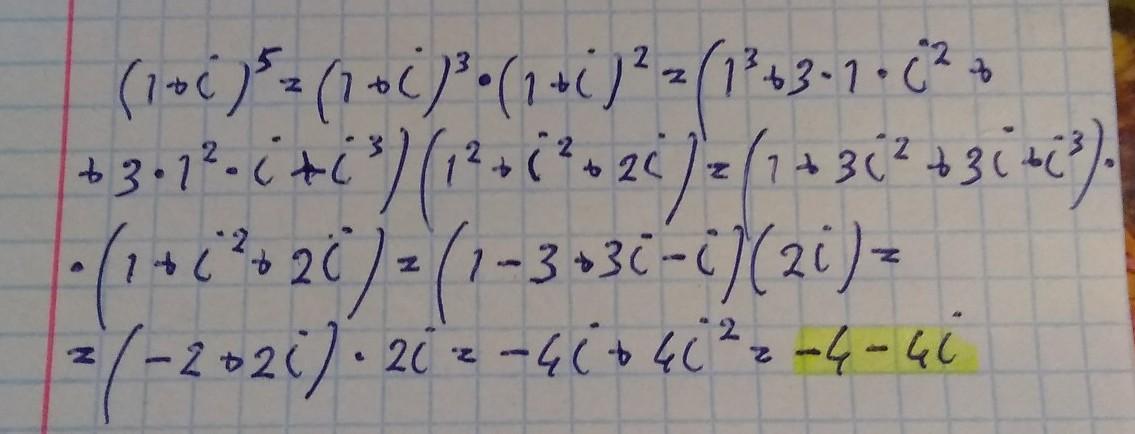 (1+i)⁵=(1+i)³·(1+i)²=(1³+3·1·i²+
+3·1²·i+i³)(1²+i²+2i)=(1+3i²+3i+i³)·
·(1+i²+2i)=(1-3+3i-i)(2i)=
=(-2+2i)·2i=-4i+4i²=-4-4i